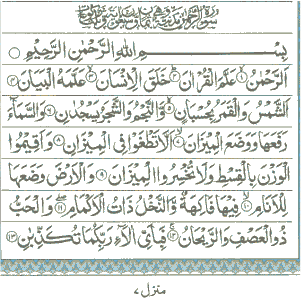 سورة الرحمن مدنية وهي ثمان وسبعون آية
بِسْمِ اللهِ الرَّحْمٰنِ الرَّحِيْمِ
اَلرَّحْمٰنُ ۙ﴿۱﴾ عَلَّمَ الْقُرْاٰنَ ؕ﴿۲﴾ خَلَقَ الْاِنْسَانَ ۙ﴿۳﴾ عَلَّمَهُ الْبَيَانَ ﴿۴﴾
اَلشَّمْسُ وَالْقَمَرُ بِحُسْبَانٍ ﴿۵﴾ وَّالنَّجْمُ وَالشَّجَرُ يَسْجُدٰنِ ﴿۶﴾ وَالسَّمَآءَ
رَفَعَهَا وَوَضَعَ الْمِيْزَانَ ۙ﴿۷﴾ اَلَّا تَطْغَوْا فِى الْمِيْزَانِ ﴿۸﴾ وَاَقِيْمُوا
الْوَزْنَ بِالْقِسْطِ وَلَا تُخْسِرُوا الْمِيْزَانَ ﴿۹﴾ وَالْاَرْضَ وَضَعَهَا
لِلْاَنَامِ ۙ﴿۱۰﴾ فِيْهَا فَاكِهَةٌ وَّالنَّخْلُ ذَاتُ الْاَكْمَامِ ﴿۱۱﴾ وَالْحَبُّ
ذُو الْعَصْفِ وَالرَّيْحَانُ ۚ﴿۱۲﴾ فَبِاَىِّ اٰلَآءِ رَبِّكُمَا تُكَذِّبٰنِ ﴿۱۳﴾
منزل ۷